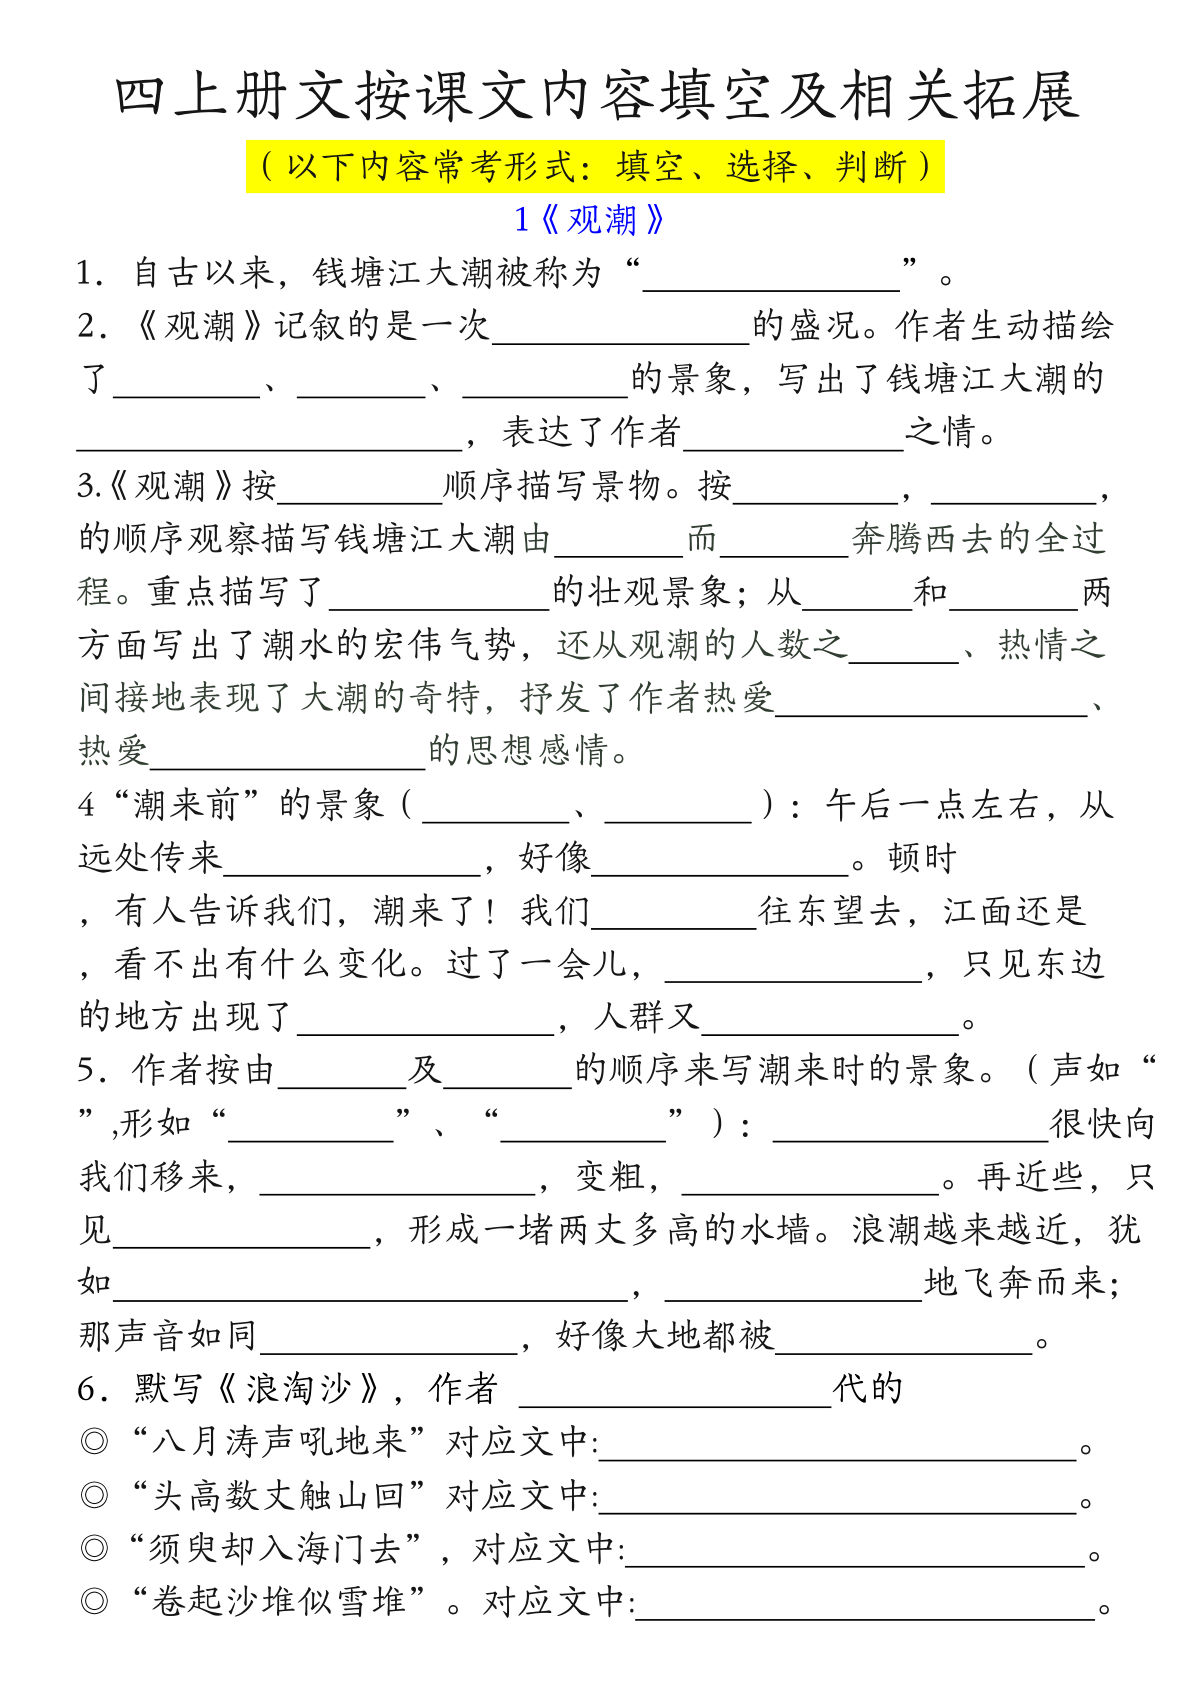 四上册文按课文内容填空及相关拓展
（以下内容常考形式：填空、选择、判断）
1《观潮》
1．自古以来，钱塘江大潮被称为“______________”。
2．《观潮》记叙的是一次______________的盛况。作者生动描绘
了________、_______、_________的景象，写出了钱塘江大潮的
_____________________，表达了作者____________之情。
3.《观潮》按_________顺序描写景物。按_________，_________，
的顺序观察描写钱塘江大潮由_______而_______奔腾西去的全过
程。重点描写了____________的壮观景象；从______和_______两
方面写出了潮水的宏伟气势，还从观潮的人数之______、热情之
间接地表现了大潮的奇特，抒发了作者热爱_________________、
热爱_______________的思想感情。
4“潮来前”的景象（________、________）：午后一点左右，从
远处传来______________，好像______________。顿时
，有人告诉我们，潮来了！我们_________往东望去，江面还是
，看不出有什么变化。过了一会儿，______________，只见东边
的地方出现了______________，人群又______________。
5．作者按由_______及_______的顺序来写潮来时的景象。（声如“
”,形如“_________”、“_________”）：_______________很快向
我们移来，_______________，变粗，______________。再近些，只
见______________，形成一堵两丈多高的水墙。浪潮越来越近，犹
如____________________________，______________地飞奔而来；
那声音如同______________，好像大地都被______________。
6．默写《浪淘沙》，作者 _________________代的
◎“八月涛声吼地来”对应文中:__________________________。
◎“头高数丈触山回”对应文中:__________________________。
◎“须臾却入海门去”，对应文中:_________________________。
◎“卷起沙堆似雪堆”。对应文中:_________________________。